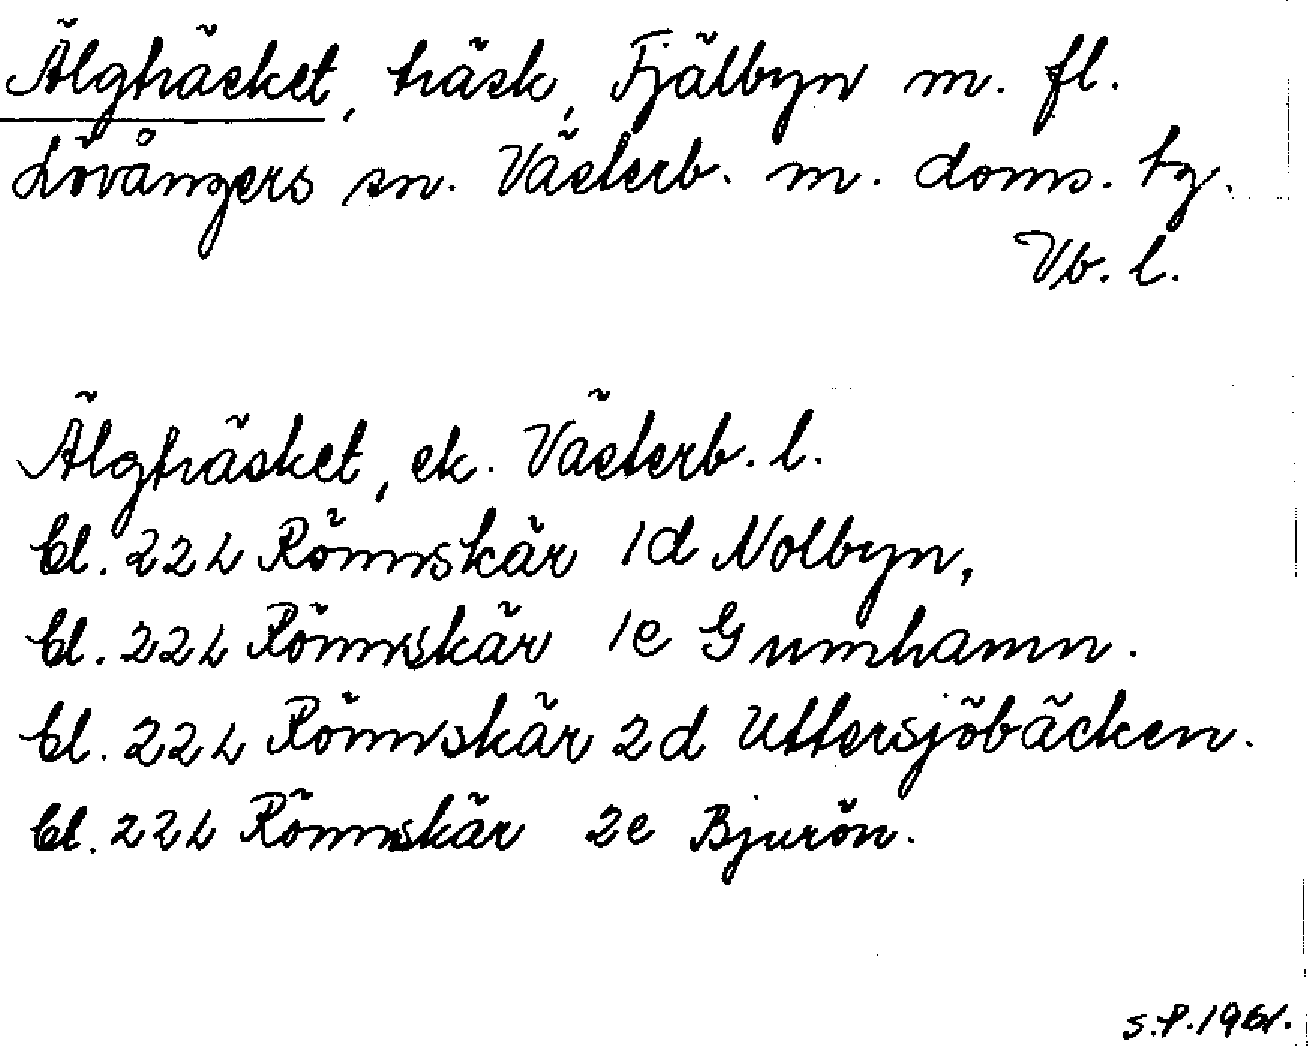 Älgträsket, träsk, Fjälbyn m. fl.
Lövångers sn. Västerb. m. doms. tg.
Vb. l.
Älgträsket, ek. Västerb. l.
bl. 22L Rönnskär 1d Nolbyn,
bl. 22L Rönnskär 1e Gumhamn.
bl. 22L Rönnskär 2d Uttersjöbäcken.
bl. 22L Rönnskär 2e Bjurön.
S.P. 1961.